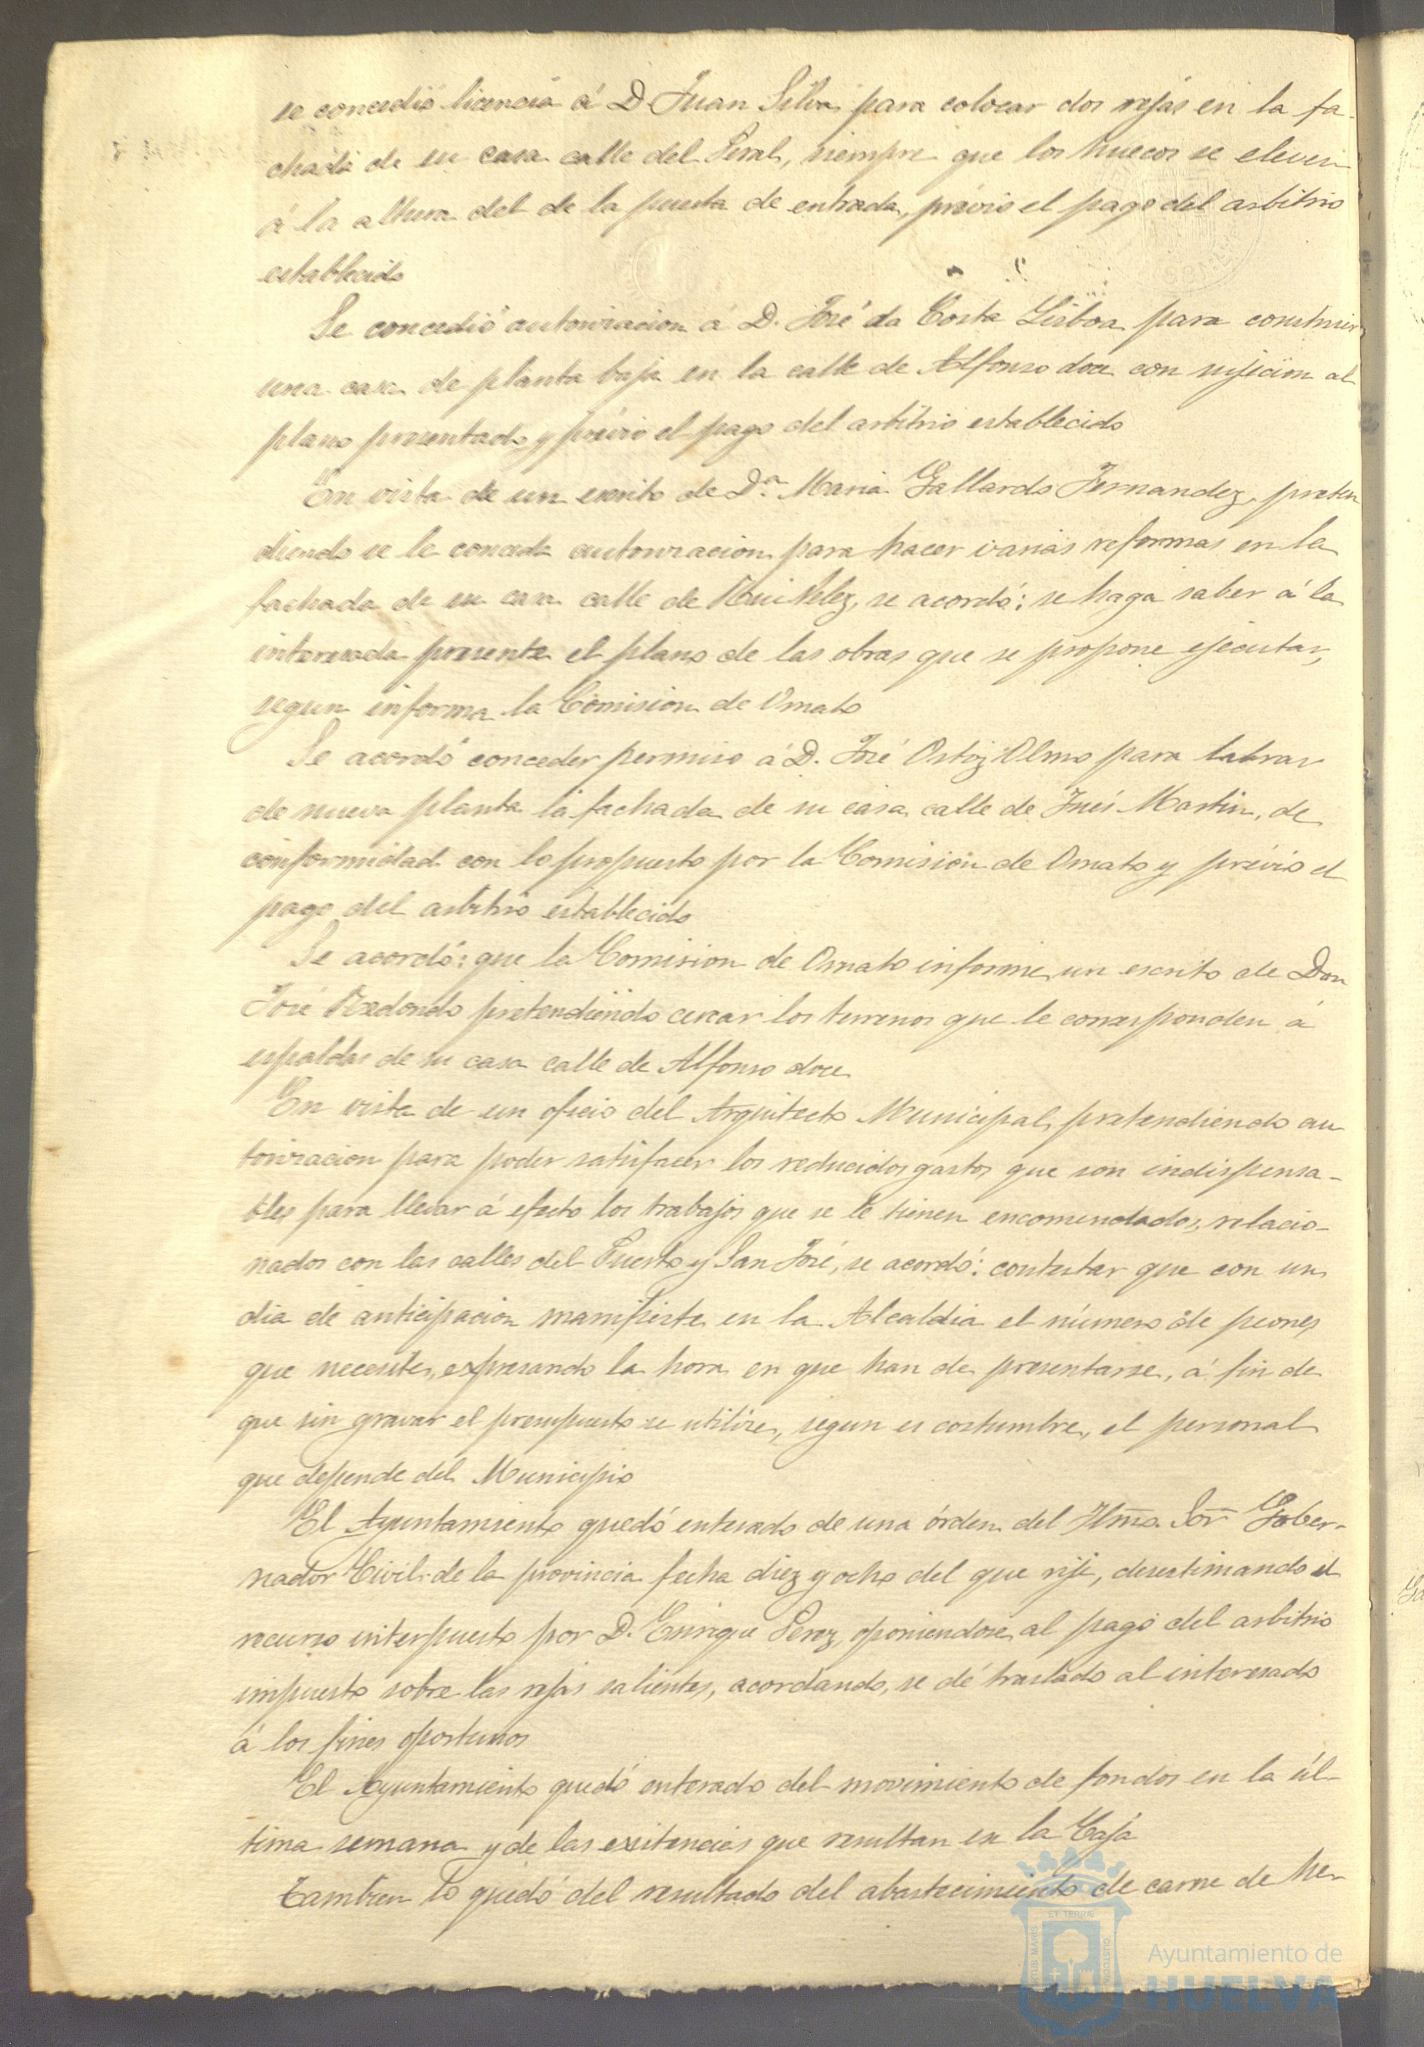 se concedió licencia á D. Juan Silva para colocar dos rejas en la fa-
chada de su casa calle del Peral, siempre que los huecos se eleven
á la altura del de la puerta de entrada, prévio el pago del arbitrio
establecido
Se concedió autorizacion á D. José da Costa Lisboa para construir
una casa de planta baja en la calle de Alfonso doce con sujecion al
plano presentado y prévio el pago del arbitrio establecido
En vista de un escrito de D.ª Maria Gallardo Fernandez, preten
diendo se le conceda autorizacion para hacer varias reformas en la
fachada de su casa calle de Rui Velez, se acordó: se haga saber á la
interesada presente el plano de las obras que se propone ejecutar,
segun informa la Comision de Ornato
Se acordó conceder permiso á D. José Ortiz Olmo para labrar
de nueva planta la fachada de su casa calle de Inés Martin, de
conformidad con lo propuesto por la Comision de Ornato y prévio el
pago del arbitrio establecido
Se acordó: que la Comision de Ornato informe un escrito de Don
José Redondo pretendiendo cercar los terrenos que le corresponden á
espaldas de su casa calle de Alfonso doce
En vista de un oficio del Arquitecto Municipal, pretendiendo au
torizacion para poder satisfacer los reducidos gastos que son indispensa-
bles para llevar á efecto los trabajos que se le tienen encomendados, relacio-
nados con las calles del Puerto y San José, se acordó: contestar que con un
dia de anticipacion manifieste en la Alcaldia el número de peones
que necesite, expresando la hora en que han de presentarse, á fin de
que sin gravar el presupuesto se utilice, segun es costumbre, el personal
que depende del Municipio
El Ayuntamiento quedó enterado de una órden del Iltmo. Sor. Gober-
nador Civil de la provincia fecha diez y ocho del que rije, desestimando el
recurso interpuesto por D. Enrique Perez, oponiendose al pago del arbitrio
impuesto sobre las rejas salientes, acordando, se dé traslado al interesado
á los fines oportunos
El Ayuntamiento quedó enterado del movimiento de fondos en la úl-
tima semana y de las existencias que resultan en la Caja
Tambien lo quedó del resultado del abastecimiento de carne de he-
Ayuntamiento de
HUELVA